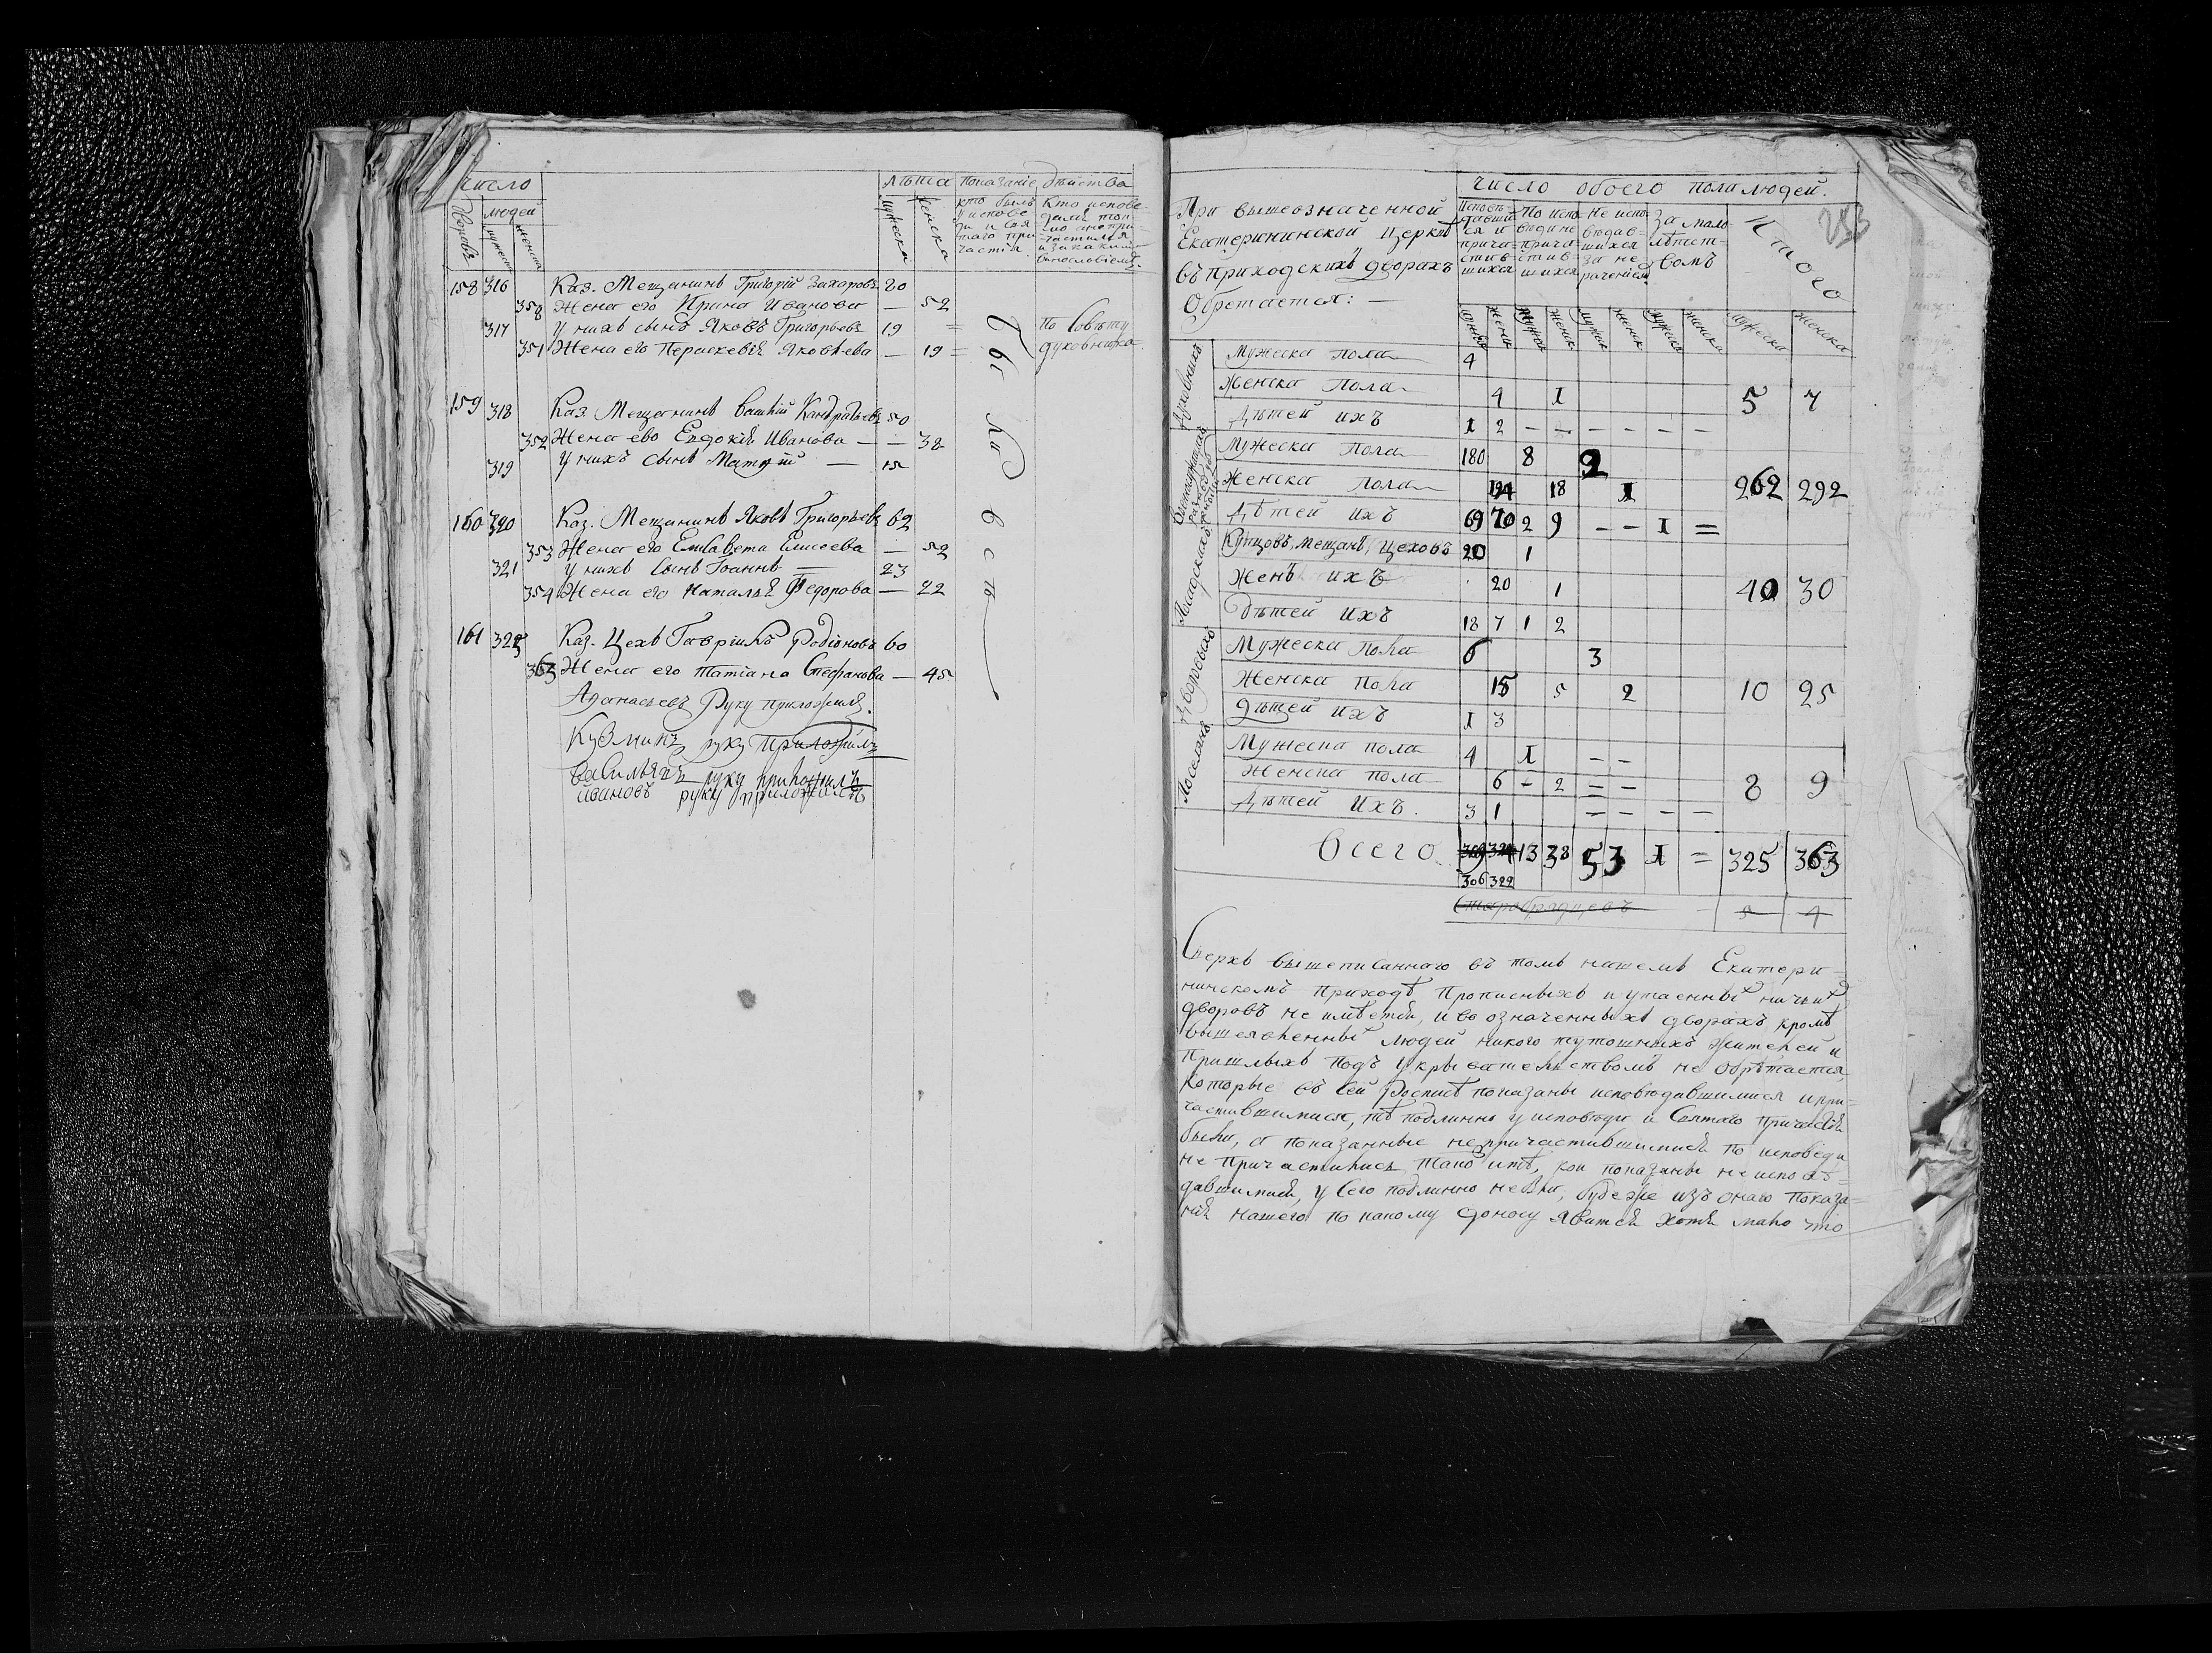 число
лѣта показаніе дѣйства
Дворовъ
людей
мужеска
женска
мужеска
женска
кто былъ у исповеди и святаго причастія.
Кто исповедался токмо а не причастился и за какимъ винословіемъ.
158 316 Каз. Мещанинъ Григорій Захаровъ 80
358 Жена его Ирина Иванова — 52
317 У нихъ сынъ Яковъ Григорьевъ 19 = По Совѣту
351 Жена его Пераскевія Яковлева — 19 = духовника.
Были
всѣ
159 318 Каз. Мещанинъ Кандратьевъ 50
352 Жена ево Евдокія Иванова — 38
319 У нихъ сынъ Матфѣй — 15
160 320 Каз. Мещанинъ Яковъ Григорьевъ 62
353 Жена его Елисавета Елисеева — 52
321 У нихъ сынъ Іоаннъ — 23
354 Жена его Наталья Федорова — 22
161 322 Каз. Цехъ Гавріилъ Родіоновъ 60
363 Жена его Татіана Стефанова — 45
Афанасьевъ Руку приложилъ.
Кузминъ руку Приложилъ
Васильевъ руку приложилъ
Ивановъ руку приложилъ
253
При вышеозначенной
Екатерининской Церквѣ
въ приходскихъ дворахъ
Обретается: —
число обоего пола людей.
Исповѣдавшися и причастившихся
По исповѣди не причастившихся
Не исповѣдавшихся за нерачениемъ
За малолѣтствомъ
Итого
мужеска женска мужеска женска мужеска женска мужеска женска мужеска женска
Духовныхъ
Мужеска пола 4
Женска пола 4 1 5 7
Дѣтей ихъ 1 2 — — — — — —
Мужеска пола 180 8 2
Женска пола 194 18 1 262 292
Дѣтей ихъ 69 70 2 9 — — 1 =
Посадскихъ
Купцовъ, мещанъ, Цеховъ 20 1
Женъ ихъ 20 1 40 30
Дѣтей ихъ 18 7 1 2
Дворовыхъ
Мужеска пола 6 3
Женска пола 15 5 2 10 25
Дѣтей ихъ 1 3
Поселянъ
Мужеска пола 4 1 — —
Женска пола 6 — 2 — — 8 9
Дѣтей ихъ. 3 1 — — — —
Всего 309 324 13 38 5 3 1 = 325 363
306 322
Старобрядцевъ — 5 4
Сверхъ вышеписаннаго въ томъ нашемъ Екатери-
нинскомъ приходѣ прописныхъ и утаенныхъ ничьихъ
дворовъ не имѣется, и во означенныхъ дворахъ, кромѣ
вышеявленныхъ людей никого тутошныхъ жителей и
Пришлыхъ подъ укрывательствомъ не обрѣтается,
которые въ сей Росписѣ показаны исповѣдавшимися и при-
частившимися, тѣ подлинно у исповѣди и Святаго Причастія
были, а показанные непричастившимися по исповѣди
не причастились тако и тѣ, кои показаны не исповѣ-
давшимися, у сего подлинно небыли, буде же изъ онаго Показа-
нія нашего по какому доносу явится хотя мало что